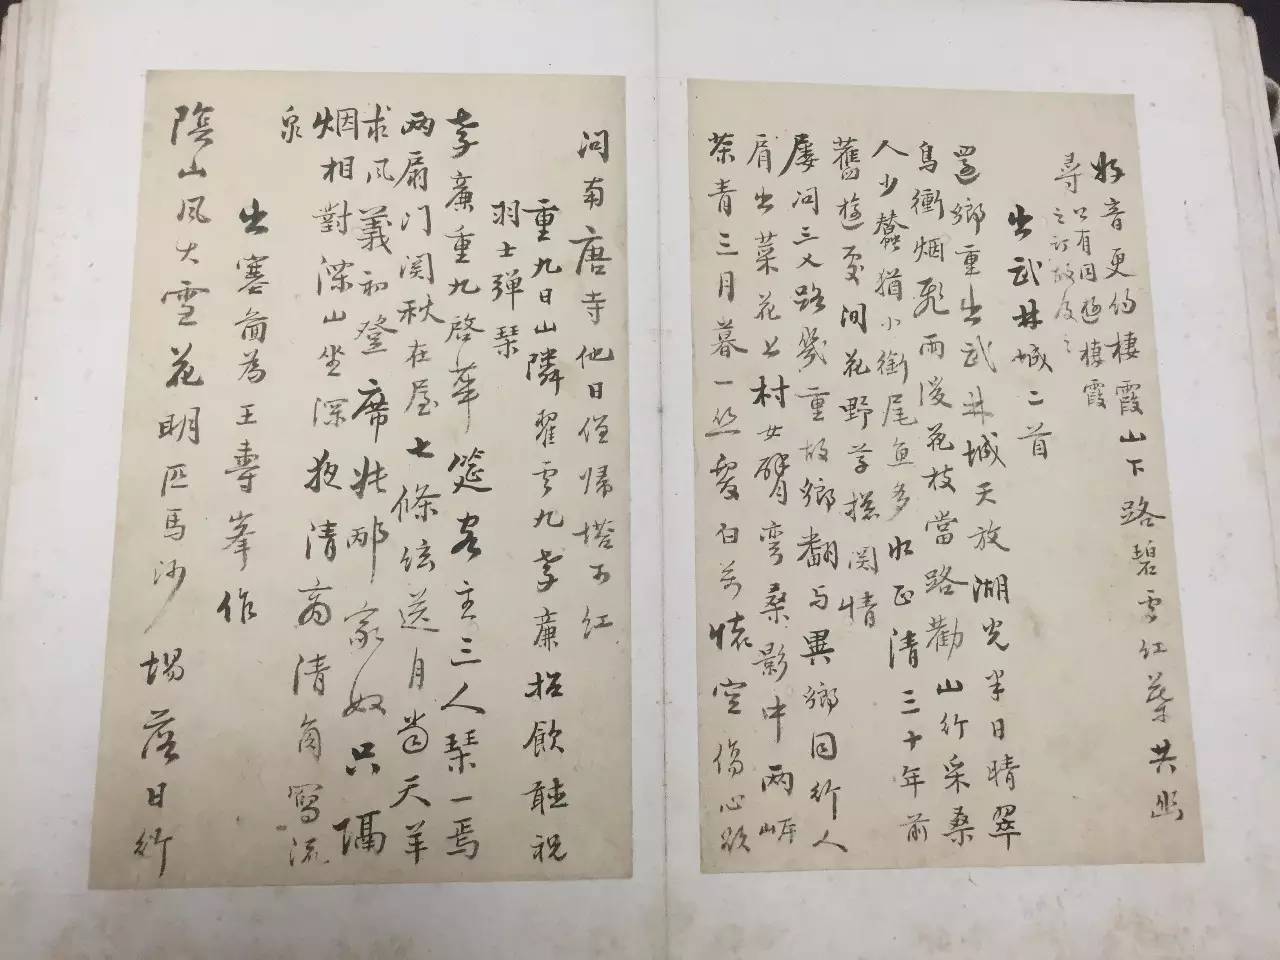 好音更約棲霞山下路碧雲紅葉共幽
尋公有同遊棲霞
之訂故及之
出武林城二首
還鄉重出武林城天放湖光半日晴翠
鳥衝烟飛雨後花枝當路勸山行采桑
人少蠶猶小銜尾魚多水正清三十年前
舊遊處閒花野草總関情
屢問三乂路幾重故鄉翻与異鄉同行人
肩出菜花上村女臂彎桑影中兩岸
茶青三月暮一絲髮白萬懷空傷心欲
問南唐寺他日僧歸塔不紅
重九日山隣翟雲九孝廉招飲聽祝
羽士弹琹
孝廉重九啓華筵客主三人琹一焉
兩扇门関秋在屋七條絃送月當天羊
求風義初登席牀邴家奴只隔
烟相對深山坐深夜清商清角寫流
泉
出塞啚為王壽峯作
陰山風大雪花明匹馬沙場落日行